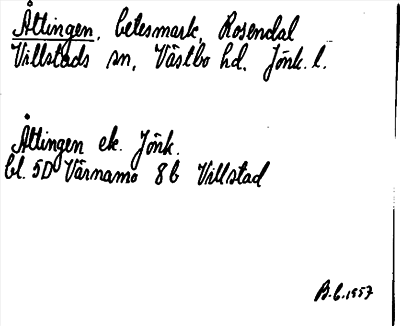 Åttingen, betesmark, Rosendal
Villstads sn, Västbo hd, Jönk. l.
Åttingen ek. Jönk.
bl. 5D Värnamo 8b Villstad
B.C. 1957